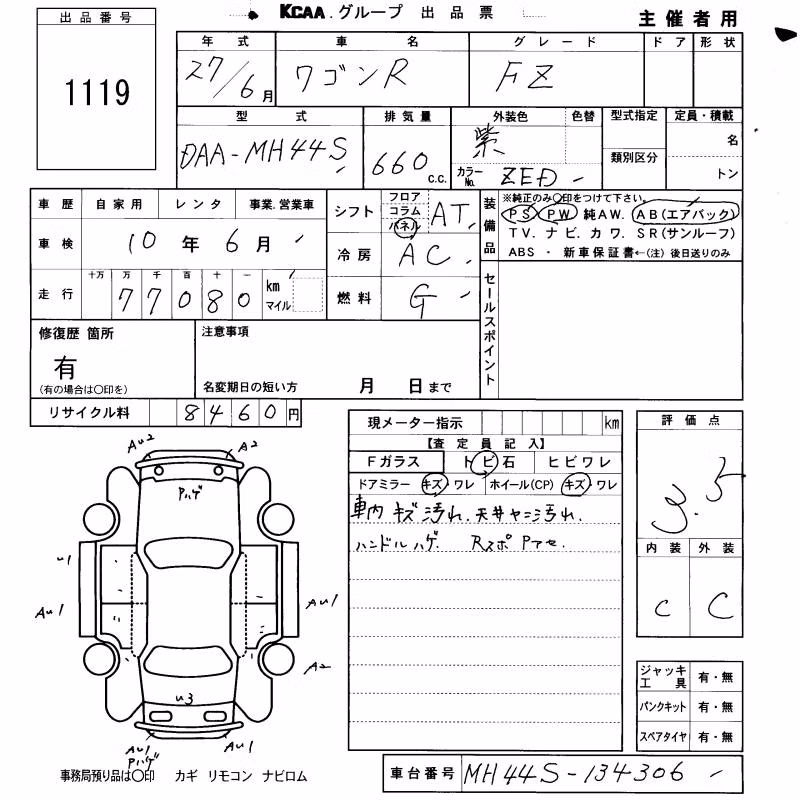 KCAA.グループ 出品票
主催者用
出品番号
1119
年式 車名 グレード ドア 形状
27/6月 ワゴンR FZ
型式 排気量 外装色 色替 型式指定 定員・積載
DAA-MH44S 660 c.c. 紫 類別区分 名
カラーNo. ZED トン
車歴 自家用 レンタ 事業.営業車
車検 10年6月
走行 十万 万 千 百 十 一 km マイル
77080
シフト フロア コラム パネル AT
冷房 AC
燃料 G
装備品
※純正のみ○印をつけて下さい。
PS PW 純AW. AB(エアバック)
TV. ナビ. カワ. SR(サンルーフ)
ABS ・ 新車保証書←(注) 後日送りのみ
セールスポイント
修復歴 箇所
有
(有の場合は○印を)
注意事項
名変期日の短い方 月 日まで
リサイクル料 8460円
現メーター指示 km
【査定員記入】
Fガラス トビ石 ヒビワレ
ドアミラー キズ・ワレ ホイール(CP) キズ・ワレ
車内 キズ 汚れ. 天井ヤニ汚れ.
ハンドルハゲ. RスポPアセ.
評価点
3.5
内装 外装
C C
ジャッキ工具 有・無
パンクキット 有・無
スペアタイヤ 有・無
車台番号 MH44S-134306
AU2 A2
Pハゲ
u1
AU1 AU1
A2
u3
AU1 AU1
Pハゲ
事務局預り品は○印 カギ リモコン ナビロム